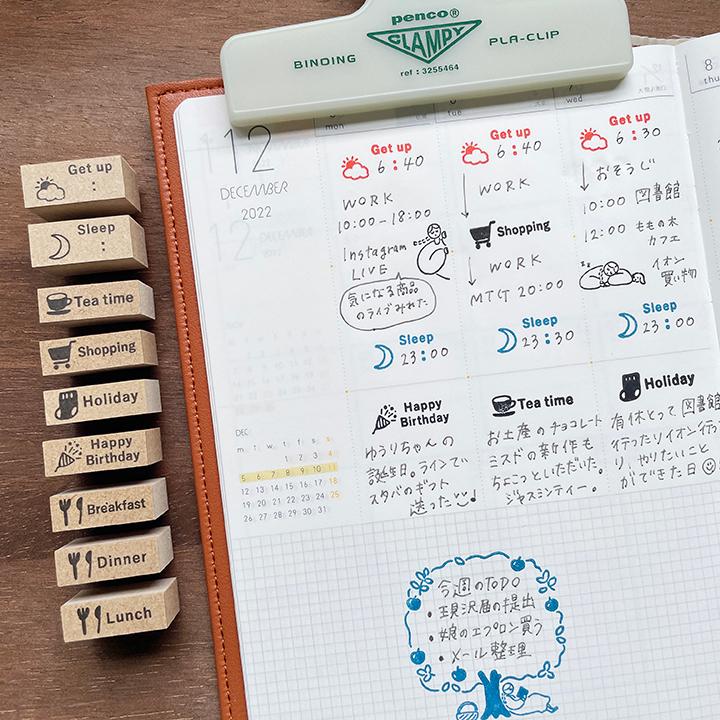 penco®
CLAMPY
BINDING
PLA-CLIP
ref : 3255464
Get up
:
Sleep
:
Tea time
Shopping
Holiday
Happy
Birthday
Breakfast
Dinner
Lunch
12
DECEMBER
2022
mon
Get up
6:40
WORK
10:00-18:00
Instagram
LIVE
気になる商品
のライブみれた
Sleep
23:00
tue
Get up
6:40
WORK
Shopping
WORK
MTG 20:00
Sleep
23:30
wed
Get up
6:30
おそうじ
10:00 図書館
12:00 ももの木
カフェ
イオン
買い物
Sleep
23:00
8
thu
Happy
Birthday
ゆうりちゃんの
誕生日。ラインで
スタバのギフト
送った
Tea time
お土産のチョコレート
ミスドの新作も
ちょこっといただいた。
ジャスミンティー。
Holiday
有休とって図書館
行ったりイオン行った
り、やりたいこと
ができた日
DEC
m t w t f s s
1 2 3 4
5 6 7 8 9 10 11
12 13 14 15 16 17 18
19 20 21 22 23 24 25
26 27 28 29 30 31
今週のToDo
・現況届の提出
・娘のエプロン買う
・メール整理